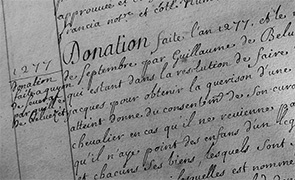 approuvée et
francia not.re et
1277
Donation
faite
par
de
Donation faite l'an 1277, et le
de septembre par Guillaume de
qui estant dans la resolution de faire
Jacques pour obtenir la guerison d'une
atteint donne, du consentement de son
chevalier en cas qu'il ne revienne pa
qu'il n'aye point des enfans d'un
et chacuns ses biens, lesquels sont
lesquelles est nomme